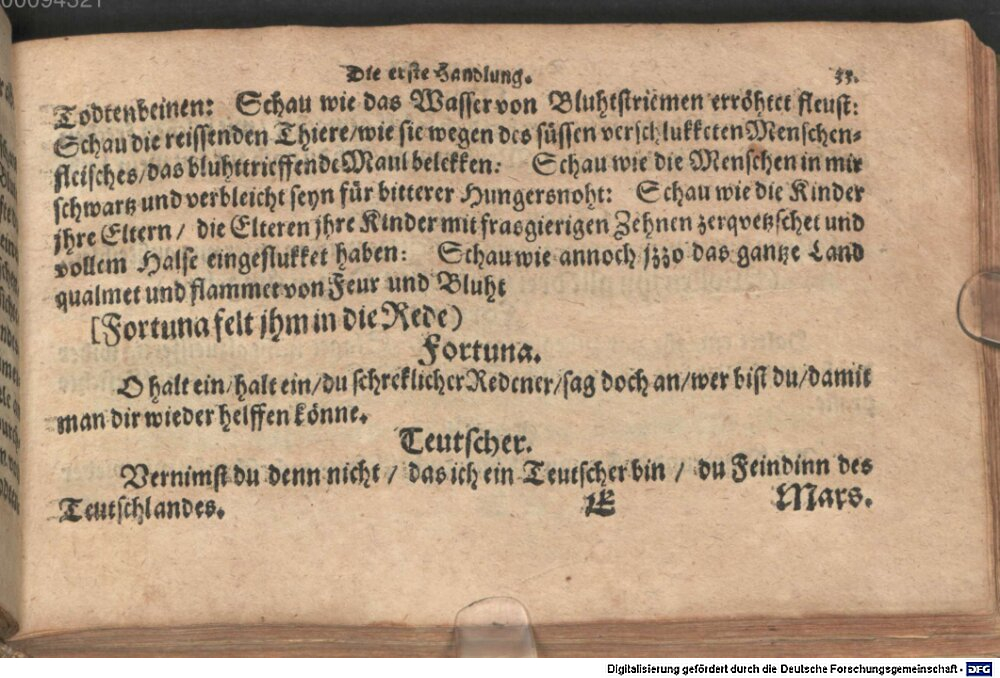 00094521
Die erste Handlung. 55.
Todtenbeinen: Schau wie das Wasser von Bluhtstriemen erröhtet fleust:
Schau die reissenden Thiere/ wie sie wegen des süssen verschlukketen Menschen-
fleisches/ das bluhttrieffende Maul belekken: Schau wie die Menschen in mir
schwartz und verbleicht seyn für bitterer Hungersnoht: Schau wie die Kinder
jhre Eltern/ die Elteren jhre Kinder mit frasgierigen Zehnen zerqvetzschet und
vollem Halse eingeslukket haben: Schau wie annoch jzzo das gantze Land
qualmet und flammet von Feur und Bluht
[Fortuna felt jhm in die Rede)
Fortuna.
O halt ein/ halt ein/ du schreklicher Redener/ sag doch an/ wer bist du/ damit
man dir wieder helffen könne.
Teutscher.
Vernimst du denn nicht/ das ich ein Teutscher bin/ du Feindinn des
Teutschlandes. Mars.
Digitalisierung gefördert durch die Deutsche Forschungsgemeinschaft - DFG